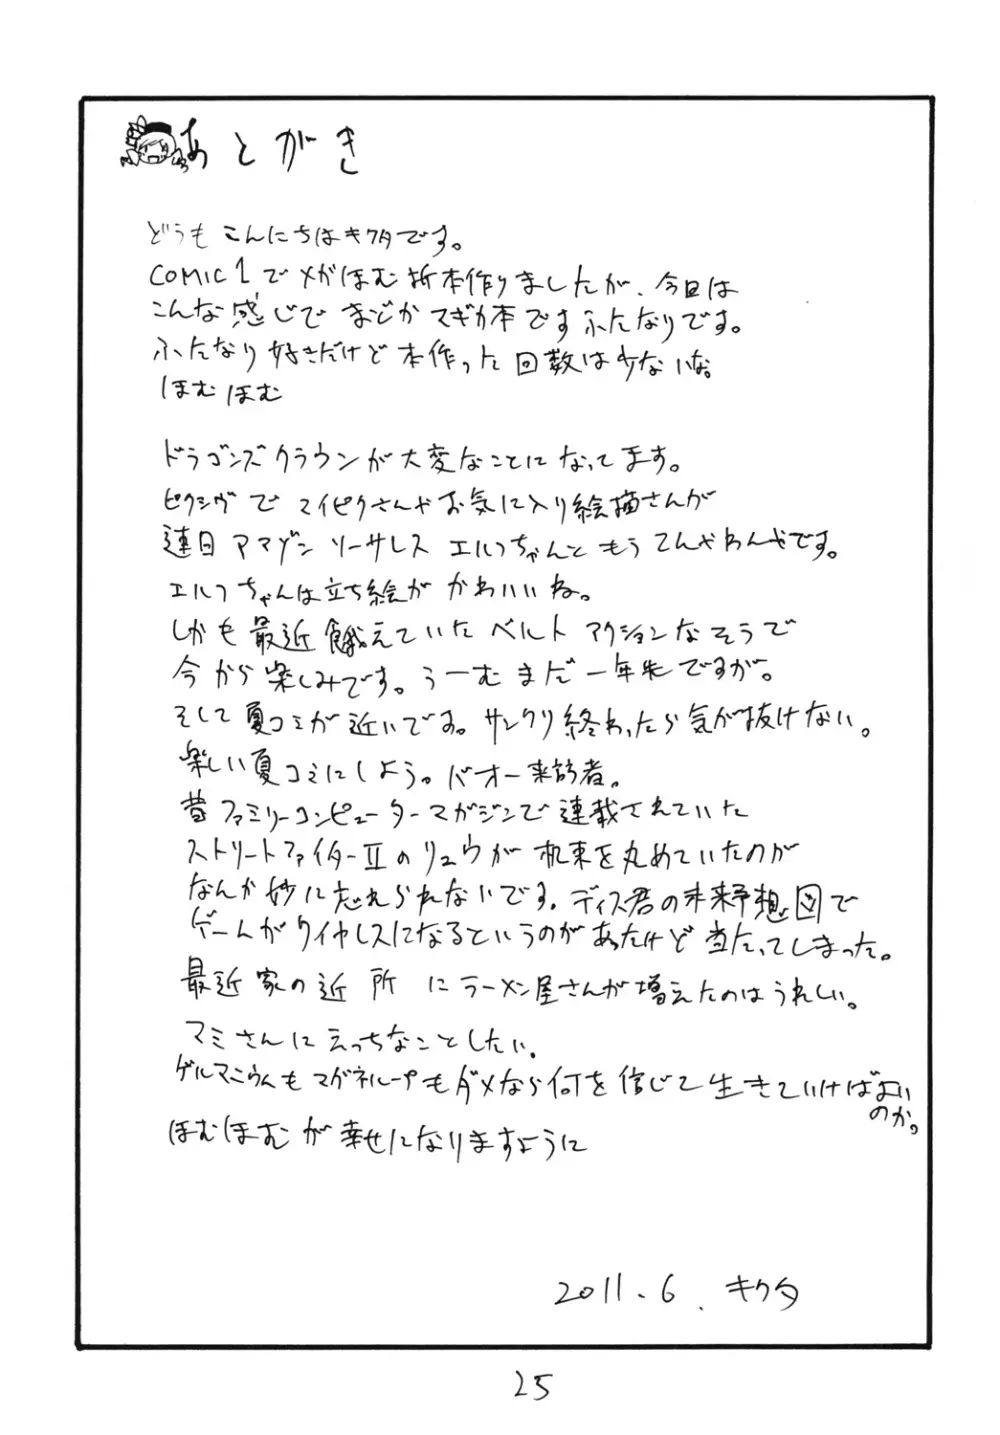 あとがき
どうもこんにちはキクタです。
COMIC1でメガほむ折本作りましたが、今回は
こんな感じでまどかマギカ本ですふたなりです。
ふたなり好きだけど本作った回数は少ないな。
ほむほむ
ドラゴンズクラウンが大変なことになってます。
ピクシヴでマイピクさんやお気に入り絵描さんが
連日アマゾンソーサレスエルフちゃんともうてんやわんやです。
エルフちゃんは立ち絵がかわいいね。
しかも最近餓えていたベルトアクションなそうで
今から楽しみです。うーむまだ一年先ですが。
そして夏コミが近いです。サンクリ終わったら気が抜けない。
楽しい夏コミにしよう。バオー来訪者。
昔ファミリーコンピューターマガジンで連載されていた
ストリートファイターⅡのリュウが札束を丸めていたのが
なんか妙に忘れられないです。ディス君の未来予想図で
ゲームがワイヤレスになるというのがあったけど当たってしまった。
最近家の近所にラーメン屋さんが増えたのはうれしい。
マミさんにえっちなことしたい。
ゲルマニウムもマグネループもダメなら何を信じて生きていけばよい
のか。
ほむほむが幸せになりますように
2011.6.キクタ
25